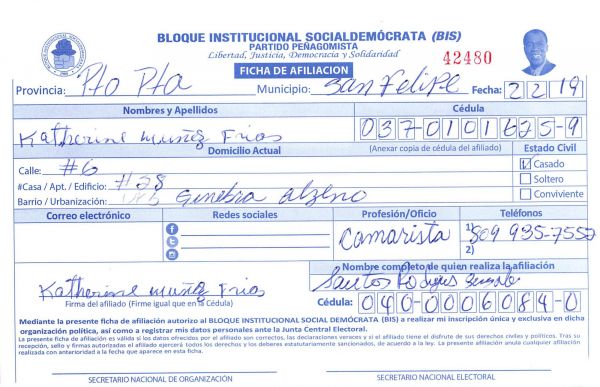 BLOQUE INSTITUCIONAL SOCIALDEMÓCRATA (BIS)
PARTIDO PEÑAGOMISTA
Libertad, Justicia, Democracia y Solidaridad
42480
FICHA DE AFILIACION
Provincia: Pto Pta Municipio: San Felipe Fecha: 2 2 19
Nombres y Apellidos Cédula
Katherine Muñoz Frias 0370101625-9
Domicilio Actual (Anexar copia de cédula del afiliado) Estado Civil
Calle: #6 Casado
#Casa / Apt. / Edificio: #28 Soltero
Barrio / Urbanización: Urb Ginebra Conviviente
Correo electrónico Redes sociales Profesión/Oficio Teléfonos
Camarista 1) 809 935-7552
2)
Nombre completo de quien realiza la afiliación
Katherine Muñoz Frias Santos
Firma del afiliado (Firme igual que en la Cédula) Cédula: 040-0006084-0
Mediante la presente ficha de afiliación autorizo al BLOQUE INSTITUCIONAL SOCIAL DEMOCRÁTA (BIS) a realizar mi inscripción única y exclusiva en dicha
organización política, así como a registrar mis datos personales ante la Junta Central Electoral.
La presente ficha de afiliación es válida si los datos ofrecidos por el afiliado son correctos, las declaraciones veraces y si el afiliado tiene el disfrute de sus derechos civiles y políticos. Tras su
recepción, sello y firmas autorizadas el afiliado ejercerá todos los derechos y los deberes estatutariamente sancionados, de acuerdo a la ley. La presente afiliación anula cualquier afiliación
realizada con anterioridad a la fecha que aparece en esta ficha.
SECRETARIO NACIONAL DE ORGANIZACIÓN SECRETARIO NACIONAL ELECTORAL